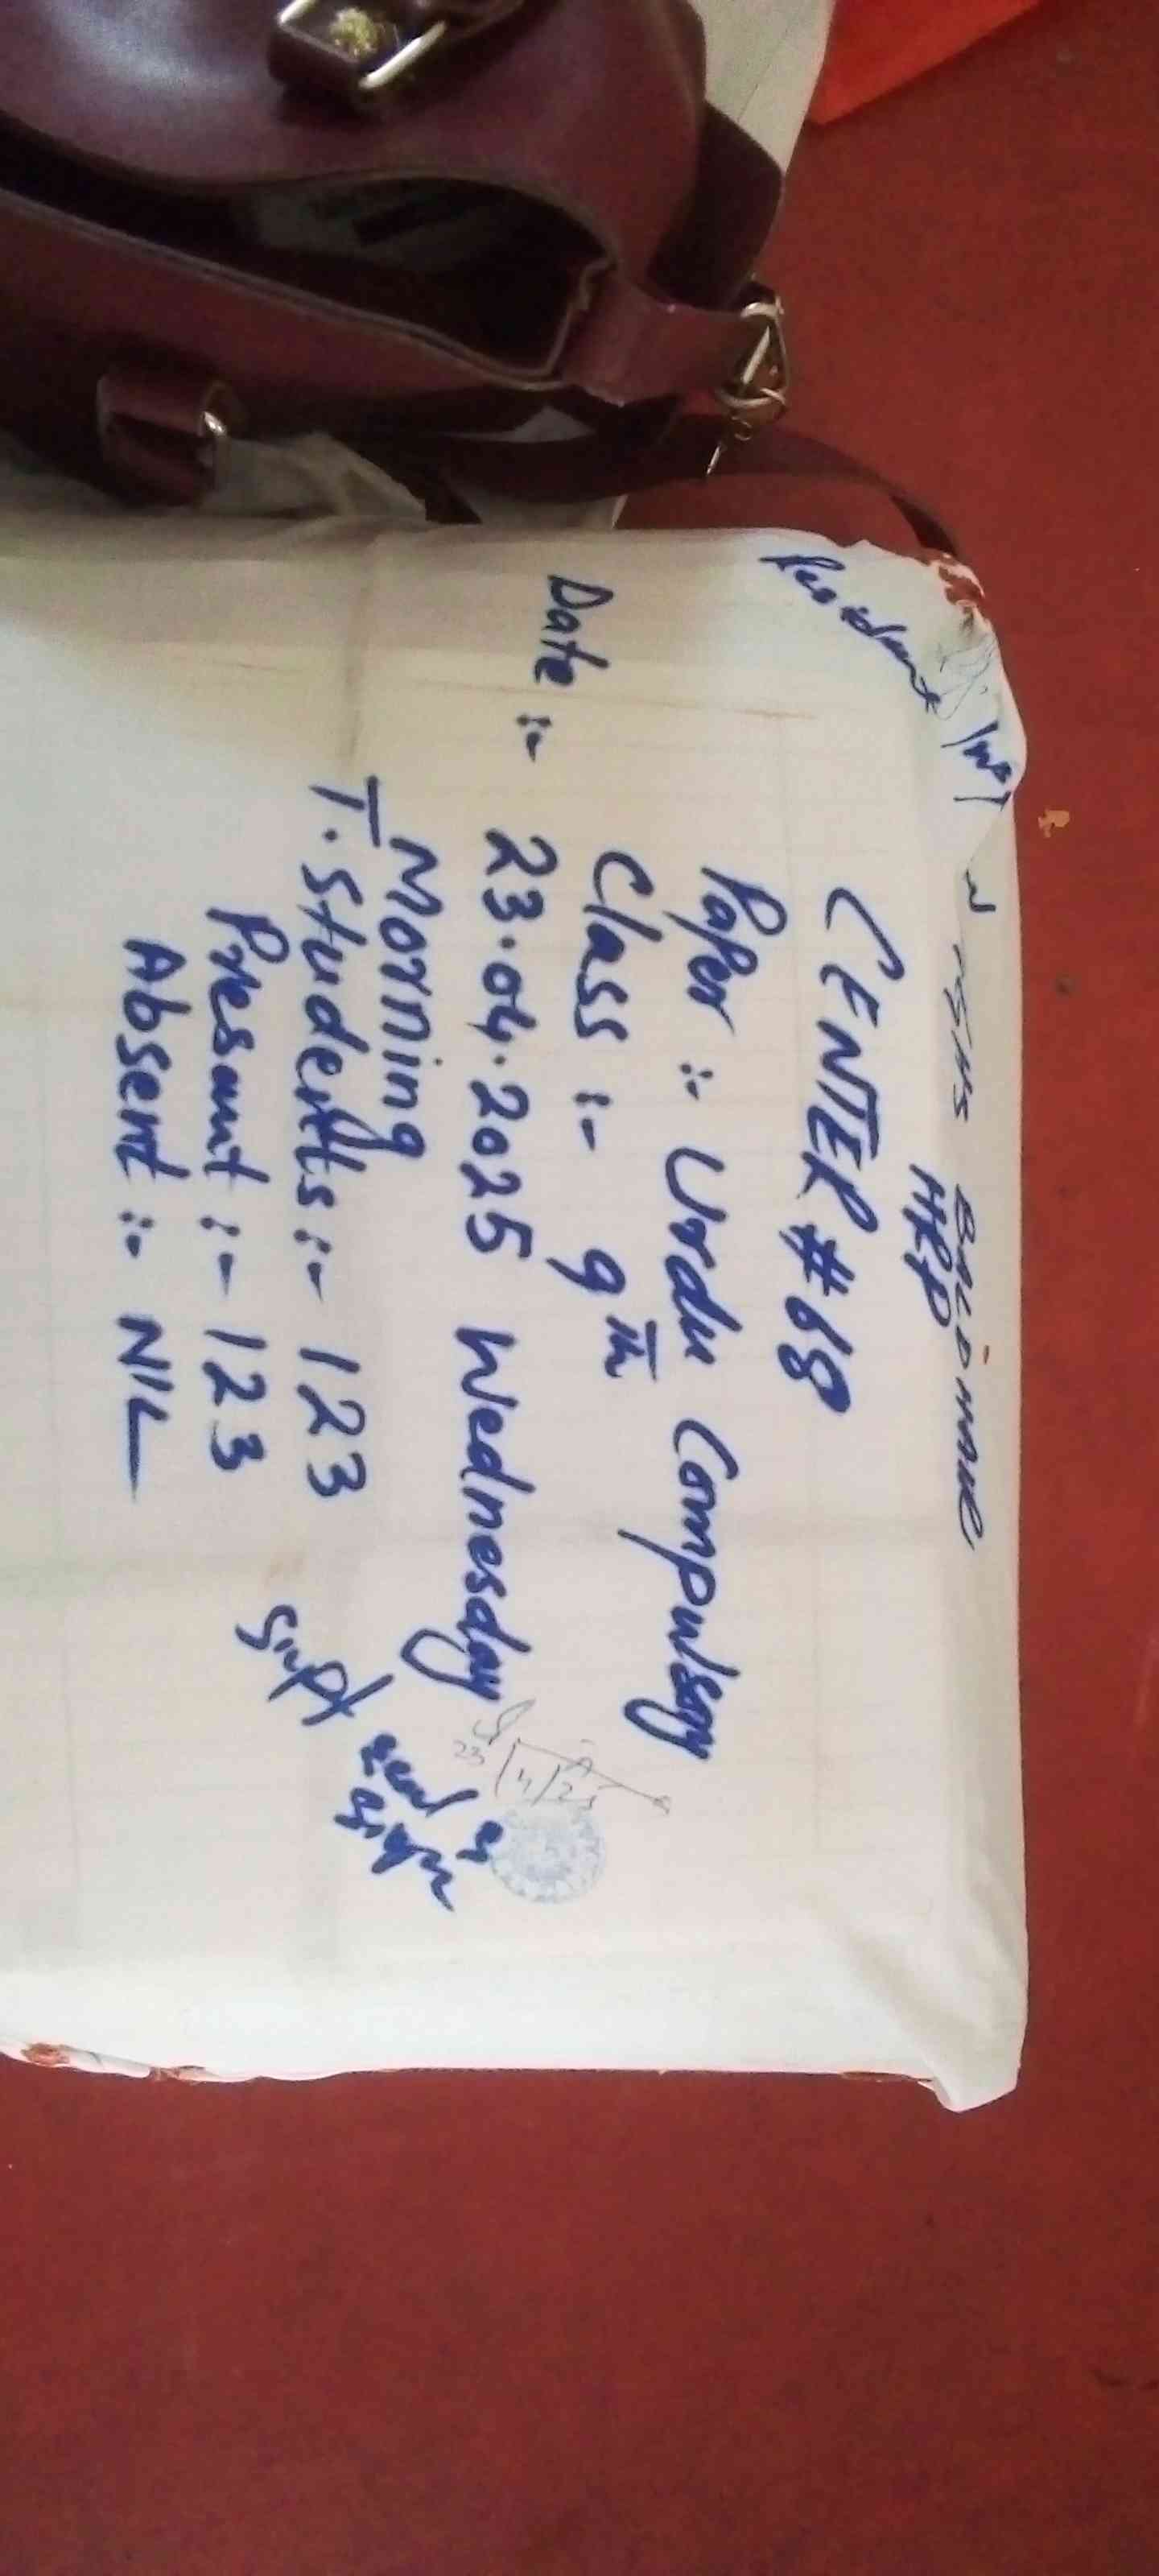 Resident Insp
GGHS BALDHAIR
HRP
CENTER # 68
Paper :- Urdu Compulsory
Class :- 9th
Date :- 23.04.2025 Wednesday
Morning
T. Students :- 123
Presant :- 123
Absent :- NIL
Supt
23/4/25